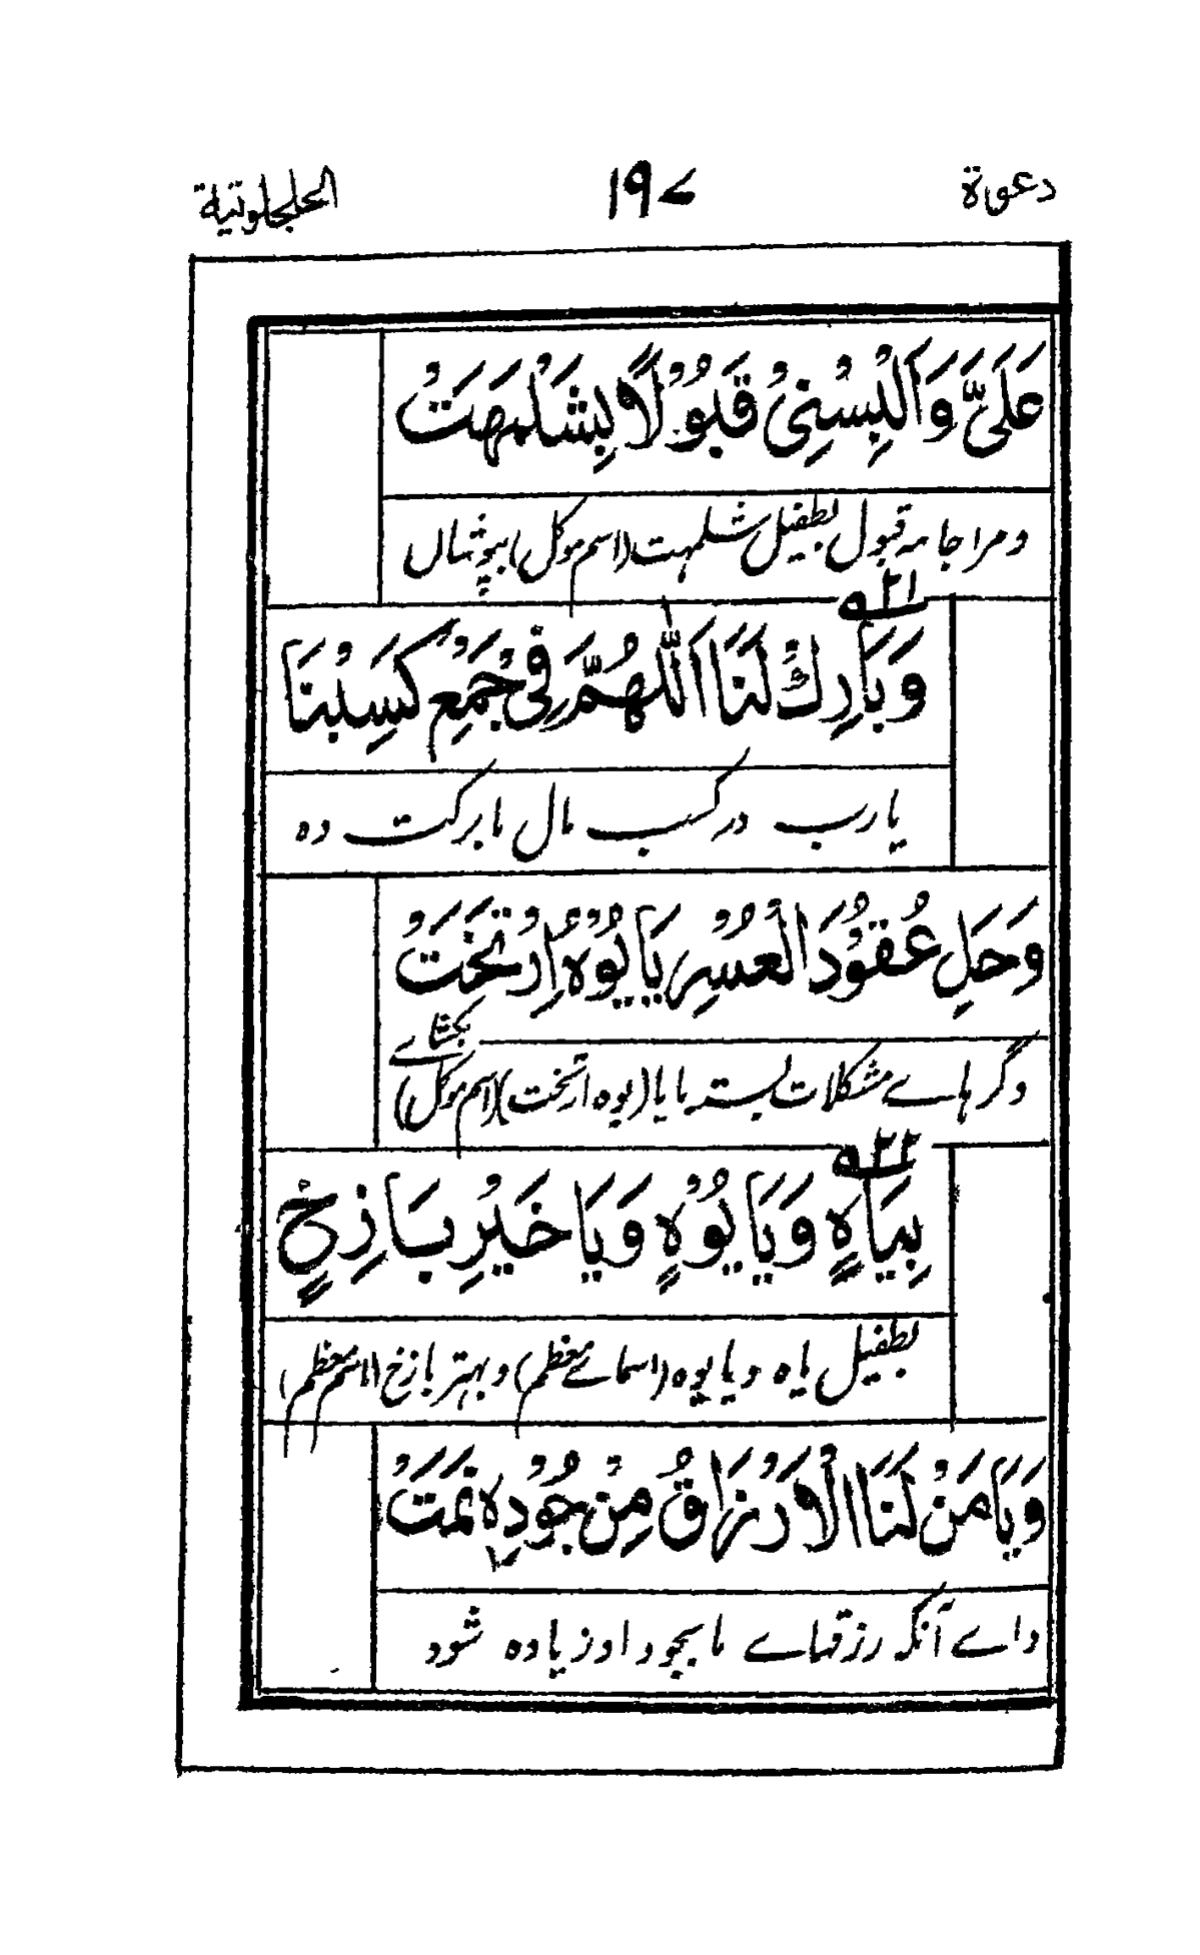 دعوة ١٩٧ الجلجلوتية
عَلَيَّ وَاَلْبِسْنِيْ قَبُوْلًا بِشَلْمَهَتْ
ومرا جامہ قبول بطفیل شلمہت (اسم موکل) بپوشاں
٢١
وَبَارِكْ لَنَا اَللّٰهُمَّ فِيْ جَمْعِ كَسْبِنَا
یا رب در کسب مال ما برکت دہ
وَحَلِ عُقُوْدَ الْعُسْرِ يَا يُوْهُ اِرْتَخَتْ
بکشاے
وگرہاے مشکلات بستہ ما یا (یوہ ارتخت) (اسم موکل)
٢٢
بِيَاهٍ وَيَا يُوْهٍ وَيَا خَيْرِ بَازِخٍ
بطفیل یاہ ویا یوہ (اسمائے معظم) و بہتر بازخ (اسم معظم)
وَيَا مَنْ لَنَا الْاَرْزَاقُ مِنْ جُوْدِهٖ نَمَتْ
واے آنکہ رزقہاے ما بجود او زیادہ شود